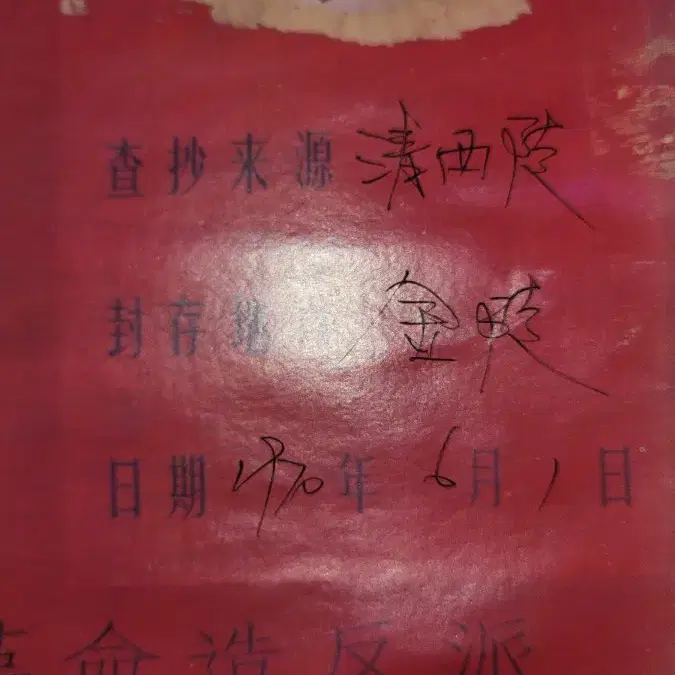 查抄来源 清西陵
封存地 金陵
日期 1970年 6月 1日
革命造反派